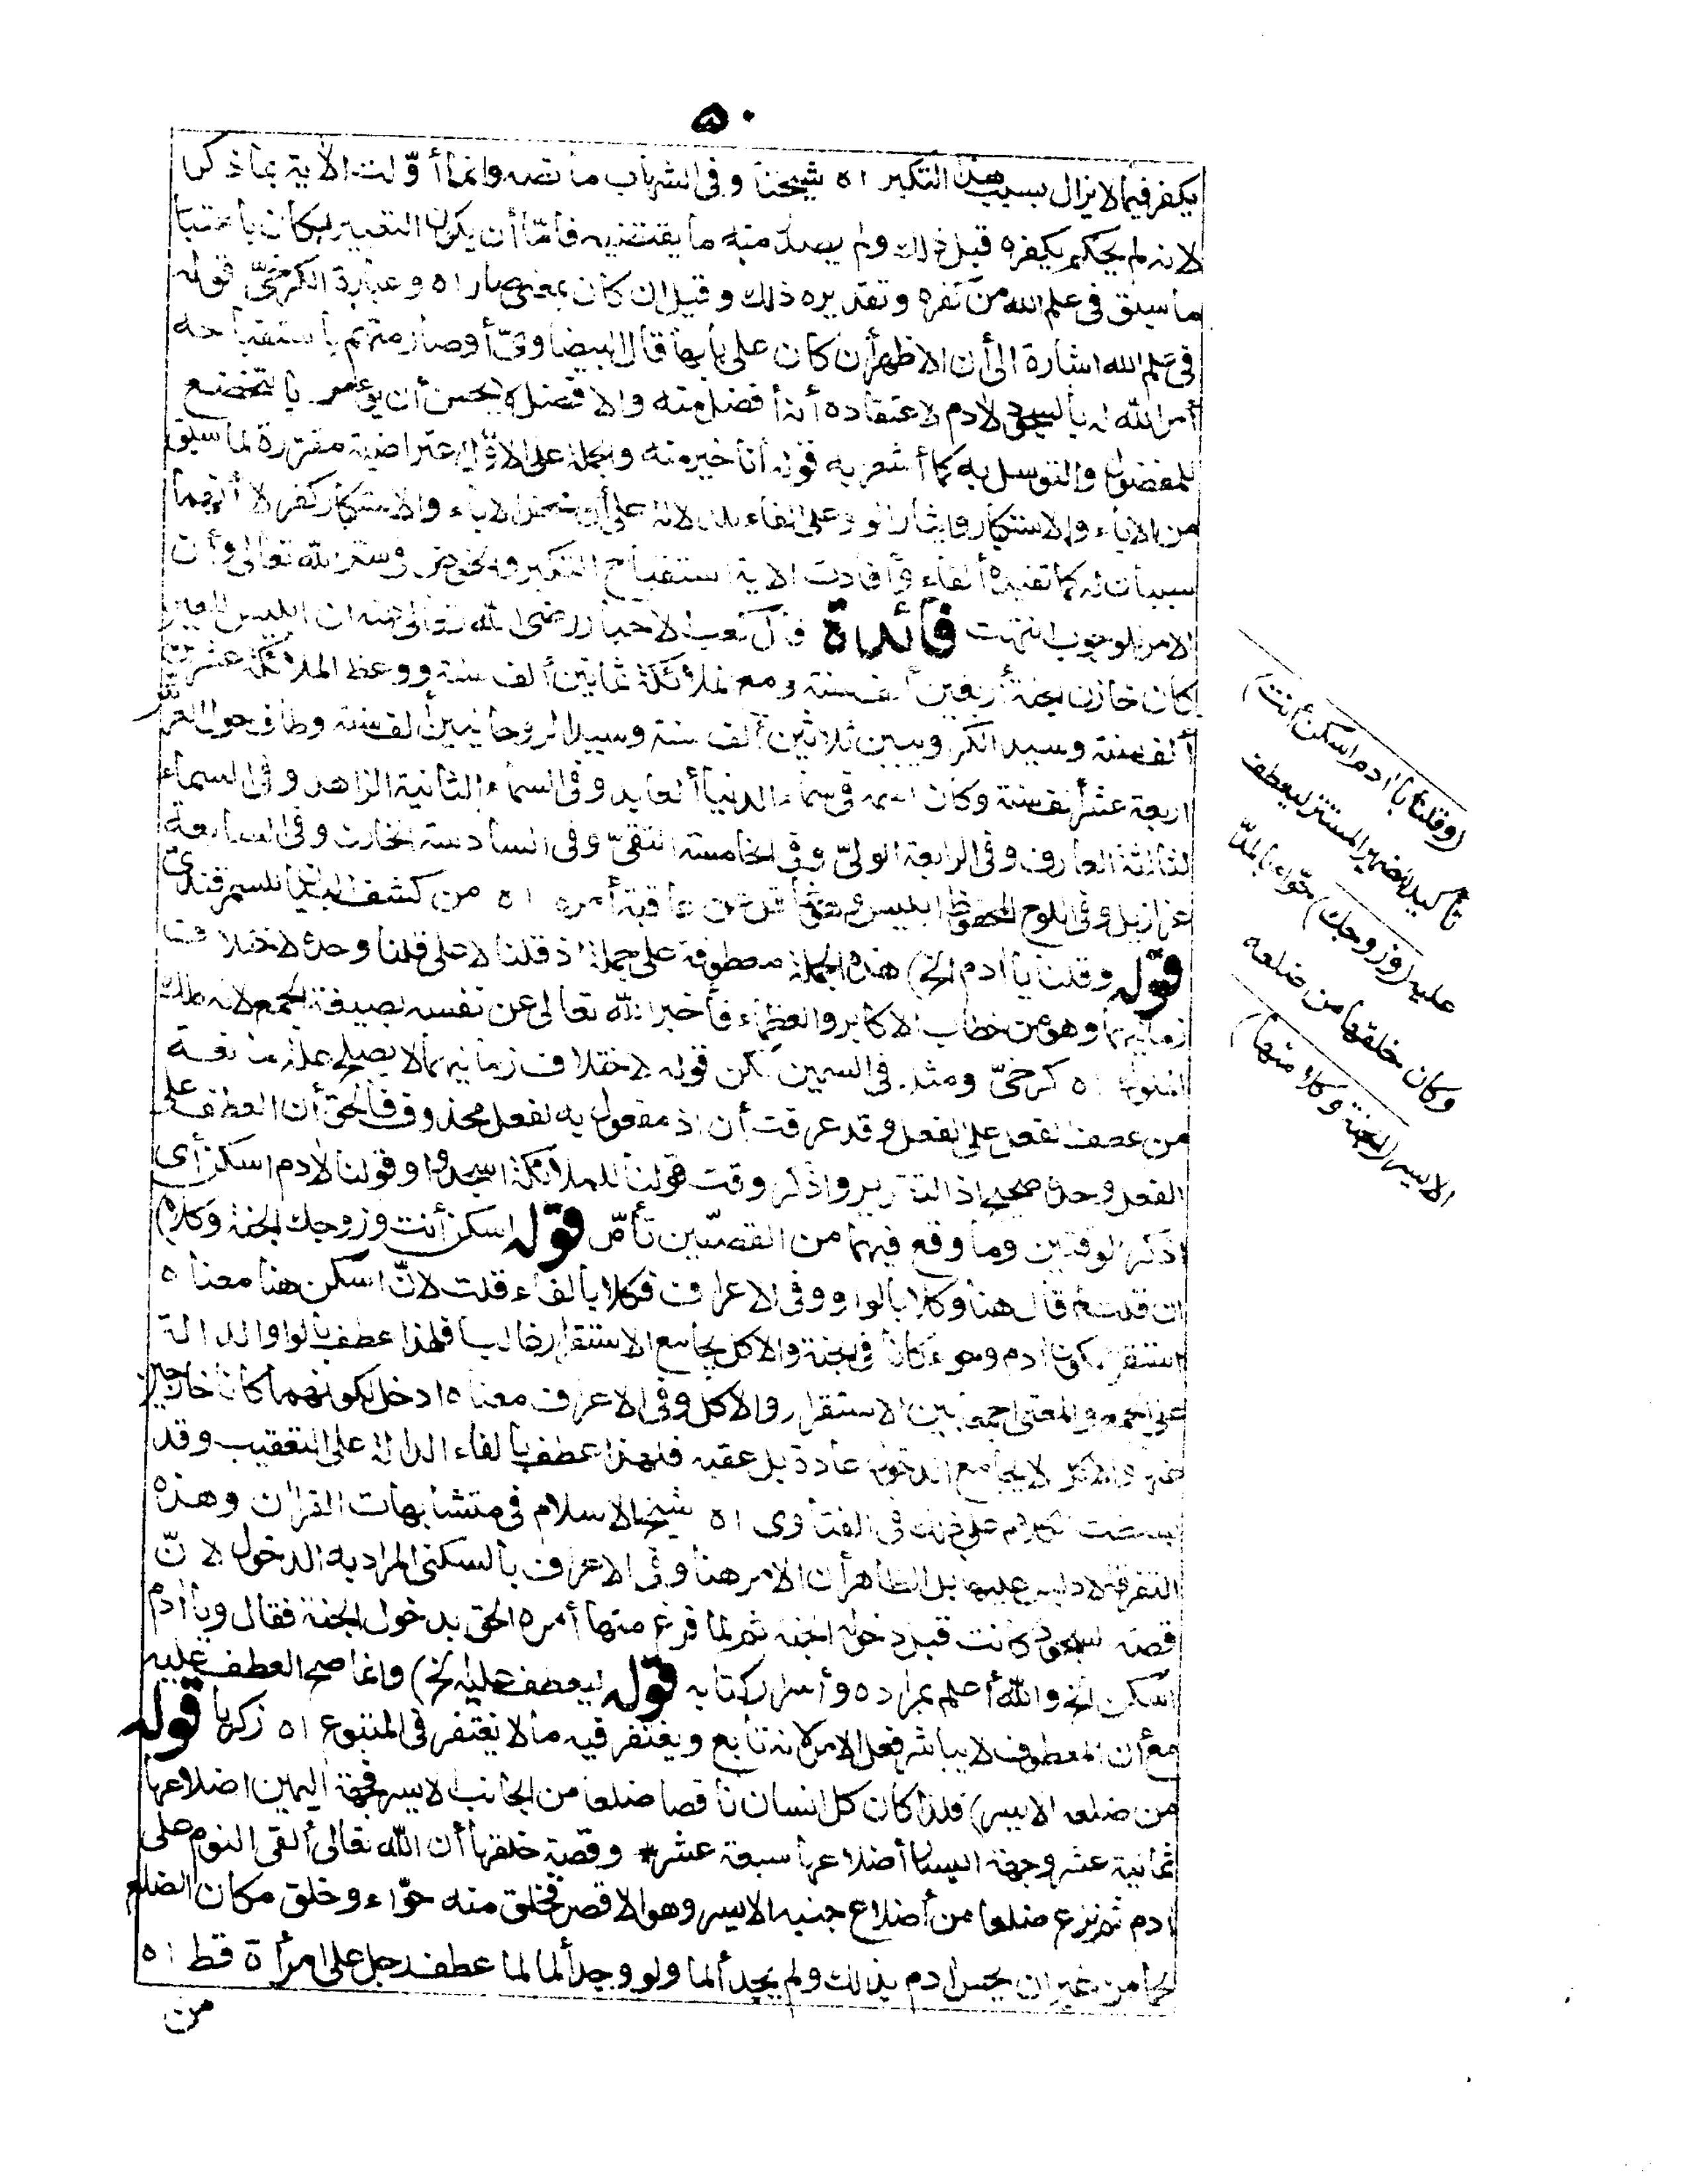 ٥٠
يكفر فيما لا يزال بسبب هذا التكبر اه شيخنا وفى الشهاب ما نصه وانما أوّلت الآية بما ذكر
لانه لم يحكم بكفره قبل ذلك ولم يصدر منه ما يقتضيه فامّا أن يكون التعبير بكان باعتبار
ما سبق فى علم الله من كفره وتقديره ذلك وقيل ان كان بمعنى صار اه وعبارة الكرخىّ قوله
فى علم الله اشارة الى أن الاظهر أن كان على بابها قال البيضاوىّ أو صار منهم باستقباحه
أمر الله له بالسجود لآدم لاعتقاده أنه أفضل منه والافضل لا يحسن أن يؤمر بالتخضع
للمفضول والتوسل به كما أشعر به قوله أنا خير منه والجملة على الاوّل اعتراضية مقررة لما سبق
من الاباء والاستكبار وايثار الواو على الفاء للدلالة على أن محض الاباء والاستكبار كفر لا أنهما
سببان له كما تفيده الفاء وأفادت الآية استقباح التكبر والخوض فى سر الله تعالى وأن
الامر للوجوب انتهت فائدة قال كعب الاحبار رضى الله تعالى عنه ان ابليس اللعين
كان خازن الجنة أربعين ألف سنة ومع الملائكة ثمانين ألف سنة ووعظ الملائكة عشرين
ألف سنة وسيد الكروبيين ثلاثين ألف سنة وسيد الروحانيين ألف سنة وطاف حول العرش
اربعة عشر ألف سنة وكان اسمه فى سماء الدنيا العابد وفى السماء الثانية الزاهد وفى السماء
الثالثة العارف وفى الرابعة الولىّ وفى الخامسة التقىّ وفى السادسة الخازن وفى السابعة
عزازيل وفى اللوح المحفوظ ابليس وهو غافل عن عاقبة أمره اه من كشف البيان للسمرقندىّ
قوله وقلنا يا آدم الخ) هذه الجملة معطوفة على جملة اذ قلنا لا على قلنا وحده لاختلاف
زمانيهما وهو من خطاب الاكابر والعظماء فأخبر الله تعالى عن نفسه بصيغة الجمع لانه ملك
الملوك اه كرخىّ ومثله فى السمين لكن قوله لاختلاف زمانيهما لا يصلح علة مانعة
من عطف الفعل على الفعل وقد عرفت أن اذ مفعول به لفعل محذوف فالحق أن العطف على
الفعل وحده صحيح اذ التقدير واذكر وقت قولنا للملائكة اسجدوا وقولنا لآدم اسكن أى
اذكر الوقتين وما وقع فيهما من القصتين تأمّل قوله اسكن أنت وزوجك الجنة وكلا)
ان قلت لم قال هنا وكلا بالواو وفى الاعراف فكلا بالفاء قلت لانّ اسكن هنا معناه
استقر لكون آدم وحواء كانا فى الجنة والاكل يجامع الاستقرار غالبا فلهذا عطف بالواو الدالة
على الجمع والمعنى اجمعا بين الاستقرار والاكل وفى الاعراف معناه ادخل لكونهما كانا خارجين
عنها والاكل لا يجامع الدخول عادة بل عقبه فلهذا عطف بالفاء الدالة على التعقيب وقد
بسطت الكلام على ذلك فى الفتاوى اه شيخ الاسلام فى متشابهات القرآن وهذه
التفرقة لا دليل عليها بل الظاهر أن الامر هنا وفى الاعراف بالسكنى المراد به الدخول لانّ
قصة السجود كانت قبل دخول الجنة ثم لما فرغ منها أمره الحق بدخول الجنة فقال ويا آدم
اسكن الخ والله أعلم بمراده وأسرار كتابه قوله ليعطف عليه الخ) وانما صح العطف عليه
مع أن المعطوف لا يباشر فعل الامر لانه تابع ويغتفر فيه ما لا يغتفر فى المتبوع اه زكريا قوله
من ضلعه الايسر) فلذا كان كل انسان ناقصا ضلعا من الجانب الايسر فجهة اليمين اضلاعها
ثمانية عشر وجهة اليسار أضلاعها سبعة عشر* وقصة خلقها أن الله تعالى ألقى النوم على
آدم ثم نزع ضلعا من أضلاع جنبه الايسر وهو الاقصر فخلق منه حوّاء وخلق مكان الضلع
لحما من غير ان يحس آدم بذلك ولم يجد ألما ولو وجد ألما لما عطف رجل على امرأة قط اه
من
(وقلنا يا آدم اسكن أنت)
تأكيد للضمير المستتر ليعطف
عليه (وزوجك) حوّاء بالمدّ
وكان خلقها من ضلعه
الايسر (الجنة وكلا منها)